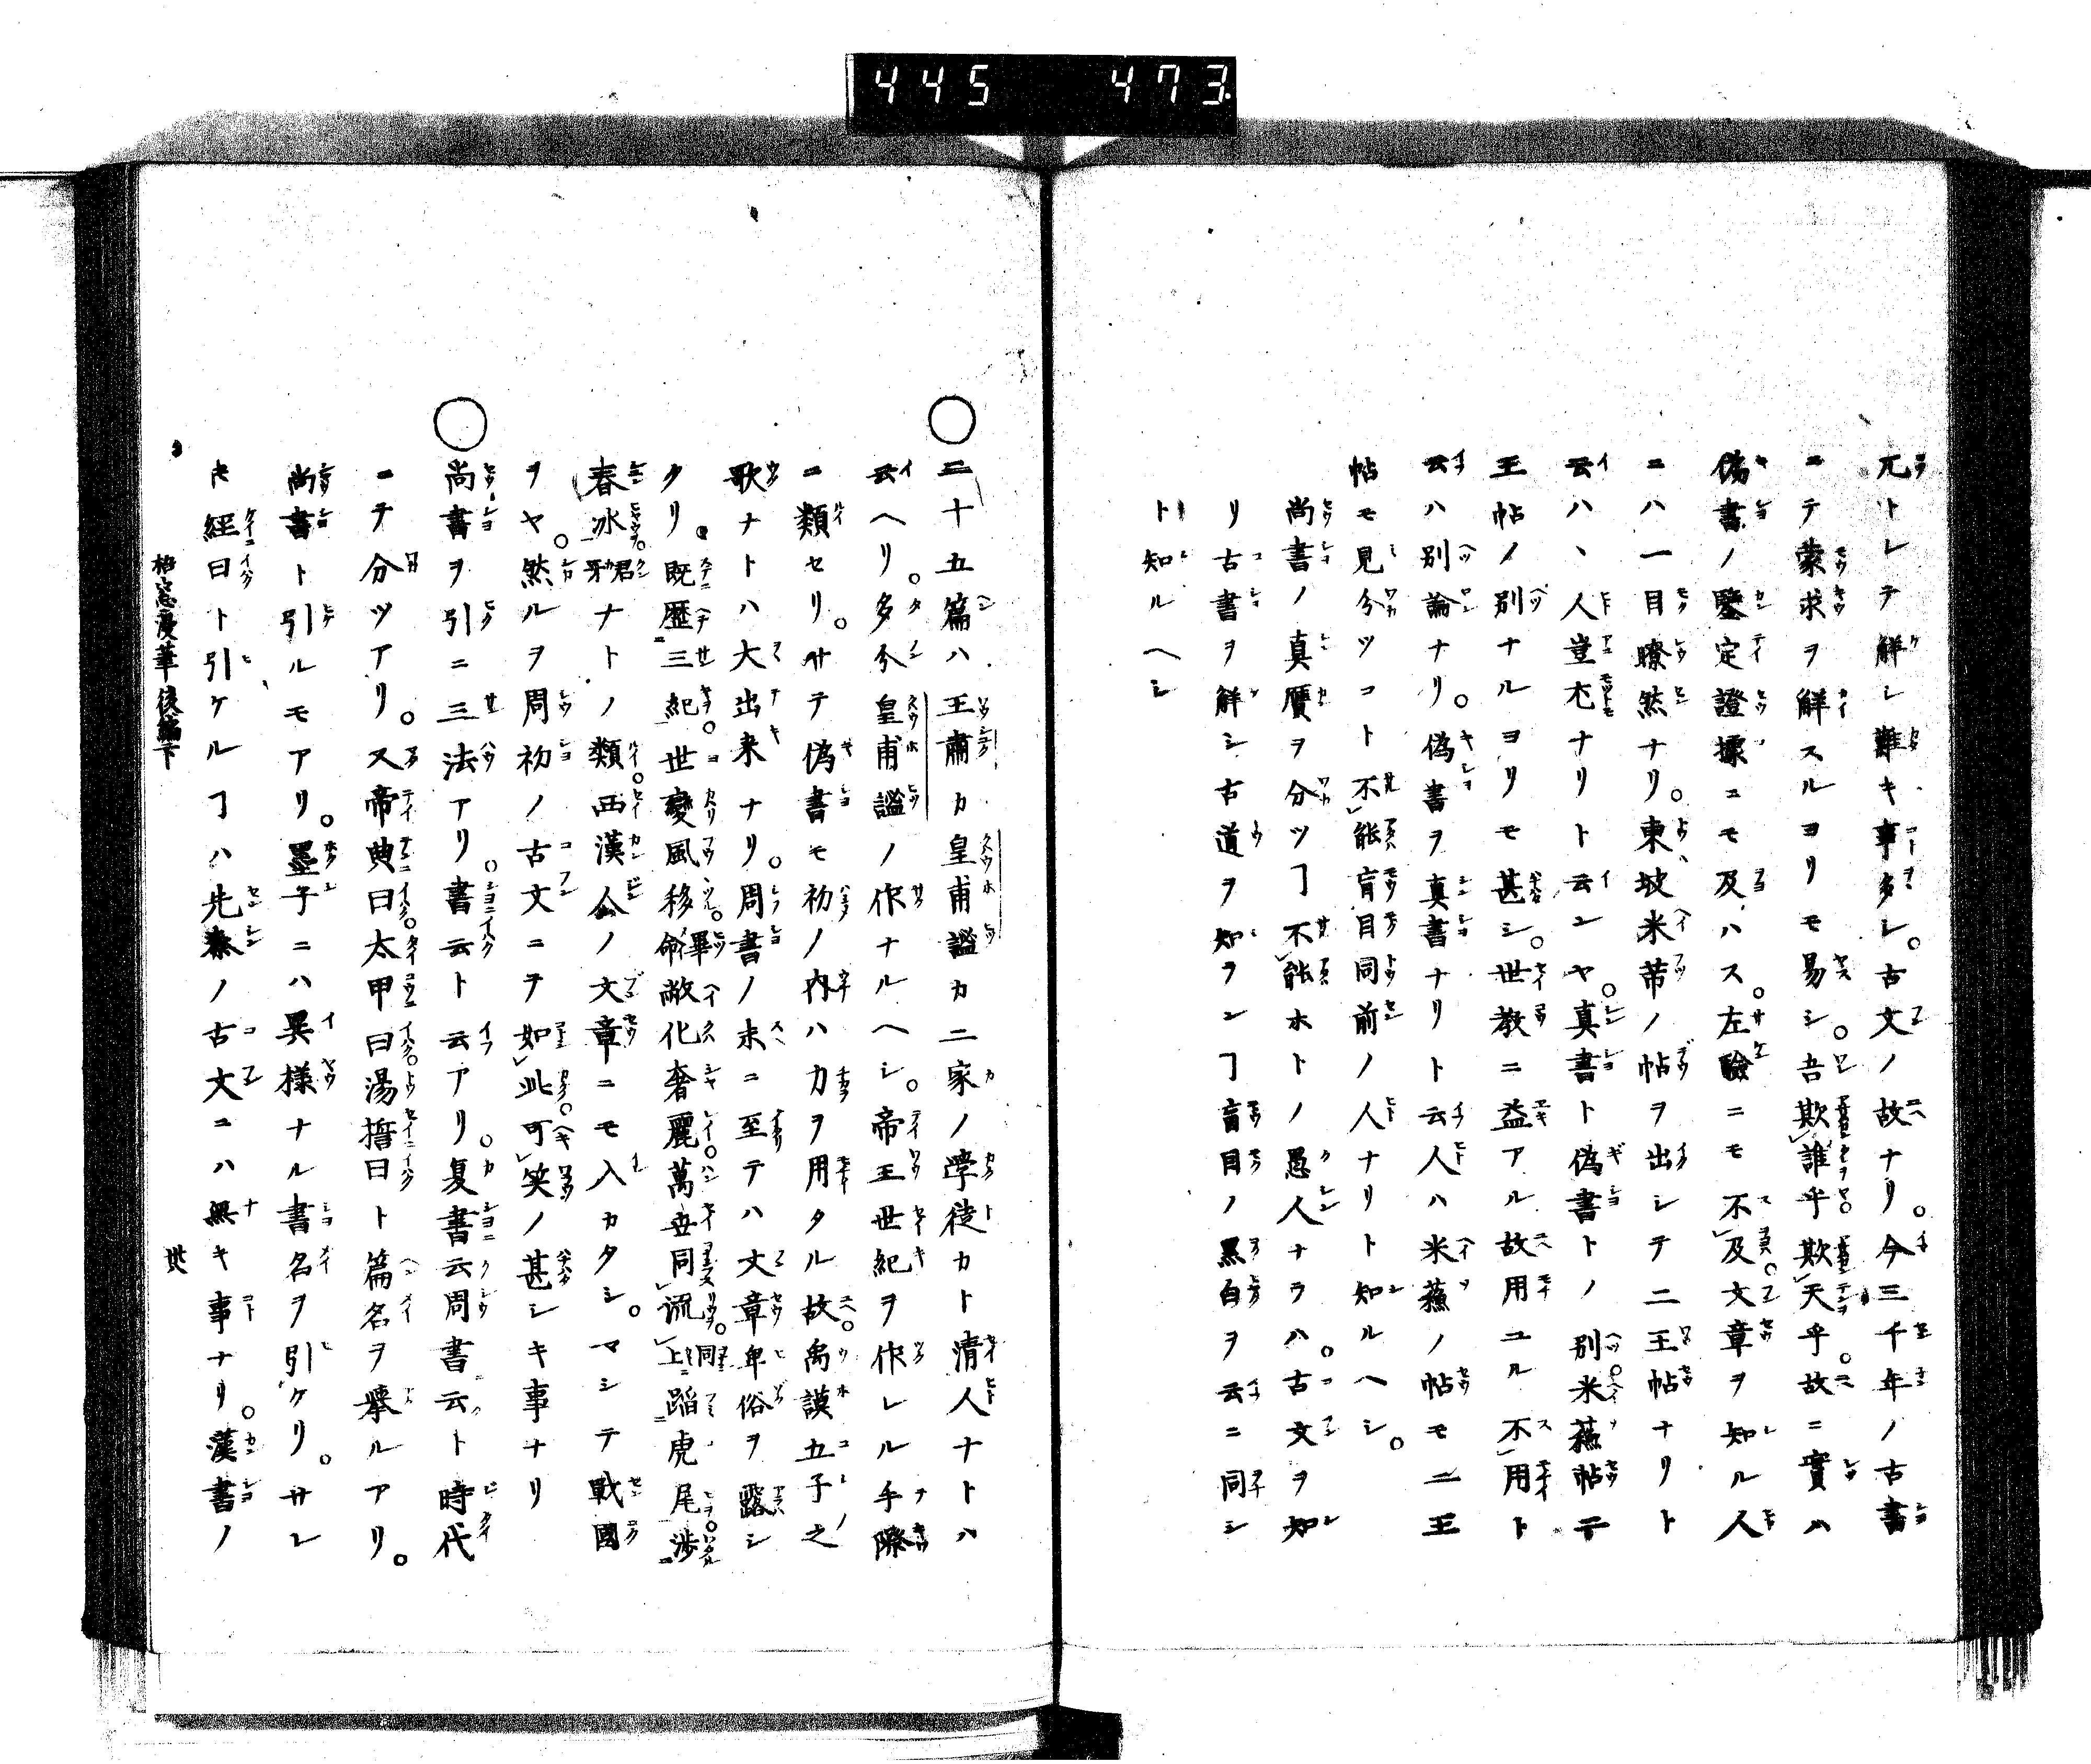 445 473
兀トシテ解シ難キ事多シ。古文ノ故ナリ。今三千年ノ古書
ニテ蒙求ヲ解スルヨリモ易シ。吾欺誰乎欺天乎。故ニ實ハ
偽書ノ鑒定證據ニモ及ハス。左驗ニモ不及文章ヲ知ル人
ニハ一目瞭然ナリ。東坡米芾ノ帖ヲ出シテ二王帖ナリト
云ハヽ人豈尤ナリト云ンヤ。真書ト偽書トノ別。米蘓帖ニ
王帖ノ別ナルヨリモ甚シ。世教ニ益アル故用ユル不用ト
云ハ別論ナリ。偽書ヲ真書ナリト云人ハ米蘓ノ帖モ二王
帖モ見分ツコト不能盲目同前ノ人ナリト知ルヘシ。
尚書ノ真贋ヲ分ツヿ不能ホトノ愚人ナラハ。古文ヲ知
リ古書ヲ解シ古道ヲ知ランヿ盲目ノ黒白ヲ云ニ同シ
ト知ルヘシ
○二十五篇ハ王肅カ皇甫謐カ二家ノ學徒カト清人ナトハ
云ヘリ。多分皇甫謐ノ作ナルヘシ。帝王世紀ヲ作レル手際
ニ類セリ。サテ偽書モ初ノ内ハ力ヲ用タル故。禹謨五子之
歌ナトハ大出来ナリ。周書ノ末ニ至テハ文章卑俗ヲ露シ
タリ。既歴三紀。世變風移。畢命敝化奢麗。萬世同流。同上蹈虎尾渉
春冰。君牙ナトノ類。西漢人ノ文章ニモ入カタシ。マシテ戰國
ヲヤ。然ルヲ周初ノ古文ニテ如此。可笑ノ甚シキ事ナリ
○尚書ヲ引ニ三法アリ。書云ト云アリ。夏書云周書云ト時代
ニテ分ツアリ。又帝典曰太甲曰湯誓曰ト篇名ヲ擧ルアリ。
尚書ト引ルモアリ。墨子ニハ異様ナル書名ヲ引ケリ。サレ
𪜈經曰ト引ケルヿハ先秦ノ古文ニハ無キ事ナリ。漢書ノ
梧窓漫筆後編下